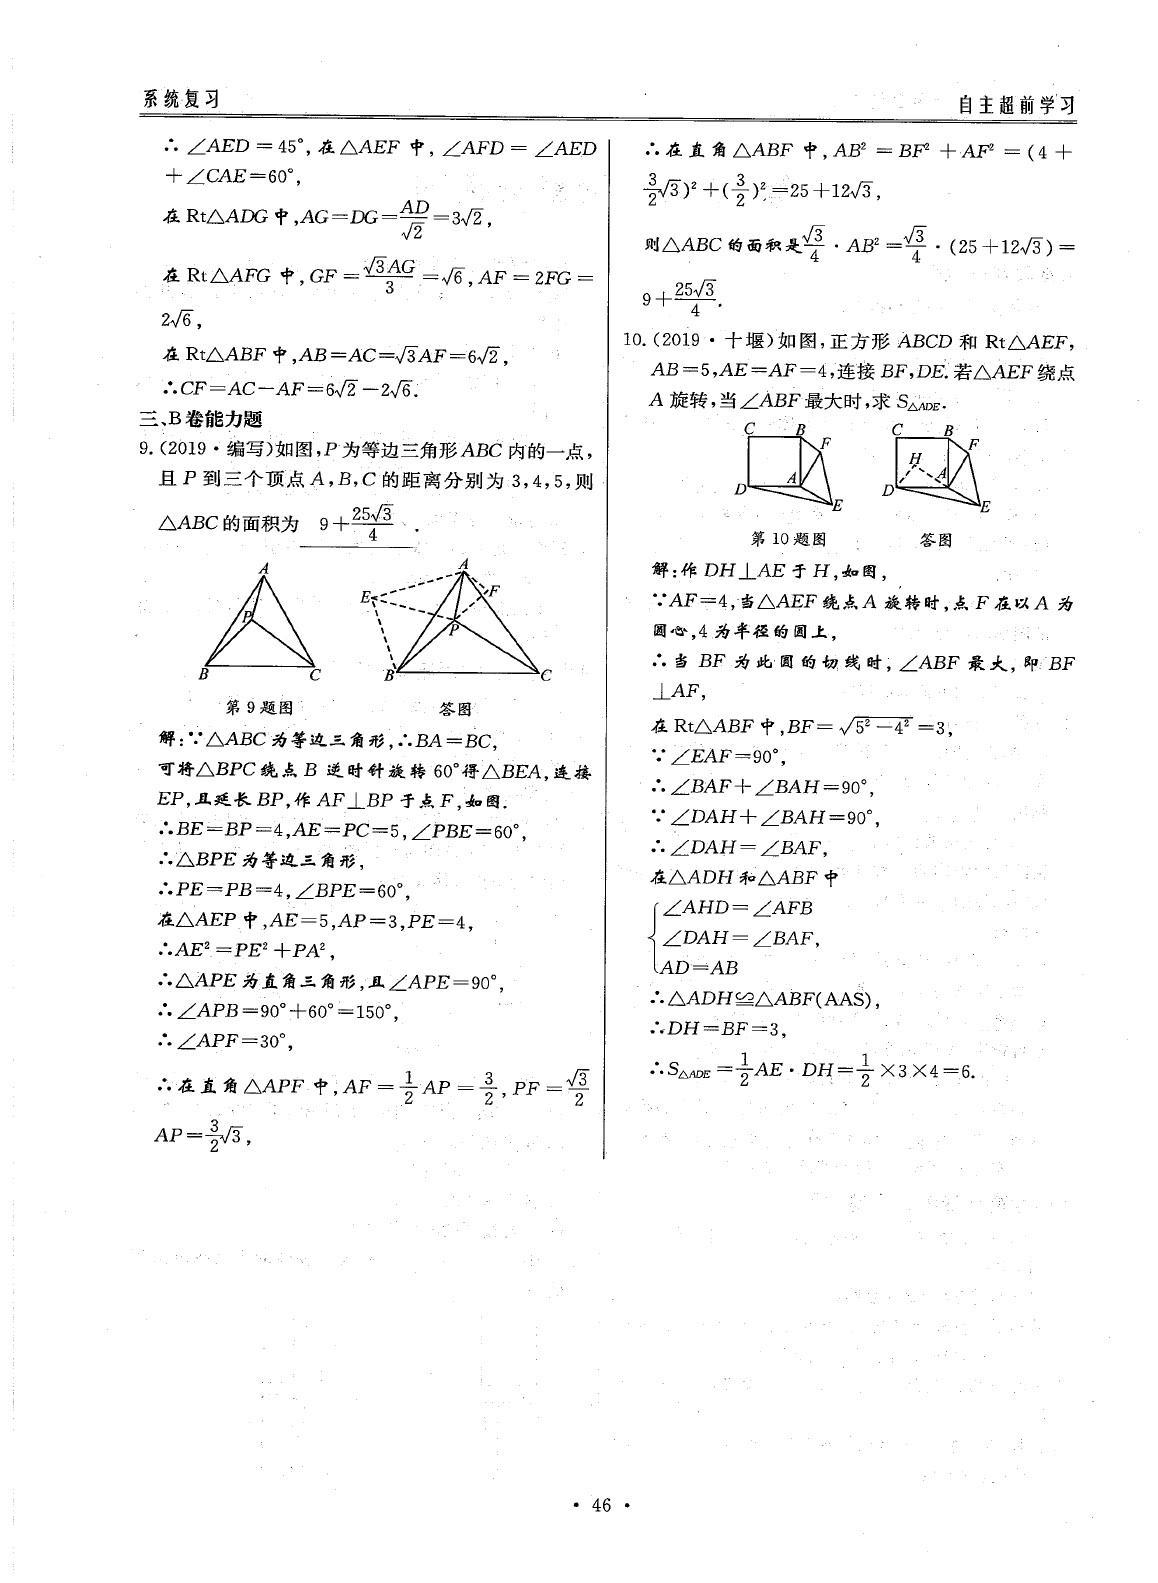 系统复习
自主超前学习
∴∠AED=45°,在△AEF中,∠AFD=∠AED
+∠CAE=60°,
在Rt△ADG中,AG=DG=AD/√2=3√2,
在Rt△AFG中,GF=√3AG/3=√6,AF=2FG=
2√6,
在Rt△ABF中,AB=AC=√3AF=6√2,
∴CF=AC-AF=6√2-2√6.
三、B卷能力题
9.(2019·编写)如图,P为等边三角形ABC内的一点,
且P到三个顶点A,B,C的距离分别为3,4,5,则
△ABC的面积为 9+25√3/4 .
A
P
B
C
A
E
F
P
B
C
第9题图
答图
解:∵△ABC为等边三角形,∴BA=BC,
可将△BPC绕点B逆时针旋转60°得△BEA,连接
EP,且延长BP,作AF⊥BP于点F,如图.
∴BE=BP=4,AE=PC=5,∠PBE=60°,
∴△BPE为等边三角形,
∴PE=PB=4,∠BPE=60°,
在△AEP中,AE=5,AP=3,PE=4,
∴AE²=PE²+PA²,
∴△APE为直角三角形,且∠APE=90°,
∴∠APB=90°+60°=150°,
∴∠APF=30°,
∴在直角△APF中,AF=1/2AP=3/2,PF=√3/2
AP=3/2√3,
∴在直角△ABF中,AB²=BF²+AF²=(4+
3/2√3)²+(3/2)²=25+12√3,
则△ABC的面积是√3/4·AB²=√3/4·(25+12√3)=
9+25√3/4.
10.(2019·十堰)如图,正方形ABCD和Rt△AEF,
AB=5,AE=AF=4,连接BF,DE.若△AEF绕点
A旋转,当∠ABF最大时,求S△ADE.
C B
F
A
D
E
C B
F
H
A
D
E
第10题图
答图
解:作DH⊥AE于H,如图,
∵AF=4,当△AEF绕点A旋转时,点F在以A为
圆心,4为半径的圆上,
∴当BF为此圆的切线时,∠ABF最大,即BF
⊥AF,
在Rt△ABF中,BF=√5²-4²=3,
∵∠EAF=90°,
∴∠BAF+∠BAH=90°,
∵∠DAH+∠BAH=90°,
∴∠DAH=∠BAF,
在△ADH和△ABF中
{∠AHD=∠AFB
∠DAH=∠BAF,
AD=AB
∴△ADH≌△ABF(AAS),
∴DH=BF=3,
∴S△ADE=1/2AE·DH=1/2×3×4=6.
·46·